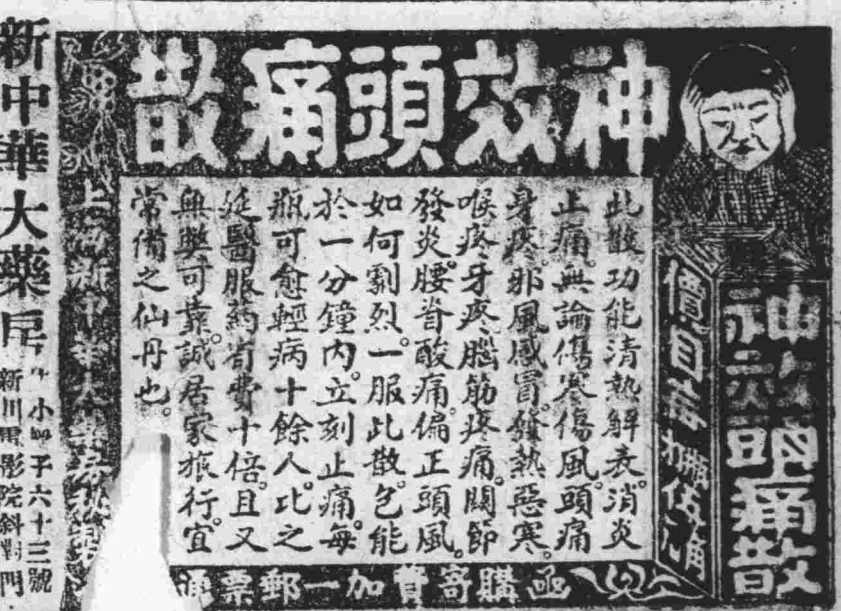 神效頭痛散
神效頭痛散
價目每瓶伍角
此散功能清熱解表消炎
止痛。無論傷寒傷風。頭痛
身疼。邪風感冒。發熱惡寒。
喉疼。牙疼。腦筋疼痛。關節
發炎。腰脊酸痛。偏正頭風。
如何劇烈。一服此散。包能
於一分鐘內。立刻止痛。每
瓶可愈輕病十餘人。比之
延醫服藥省費十倍。且又
無弊可靠。誠居家旅行宜
常備之仙丹也。
函購寄費加一郵票通
新中華大藥房
小 子六十三號
新川電影院斜對門